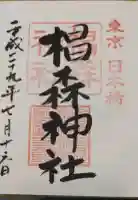 東京 日本橋
椙森神社
平成二九年七月十六日